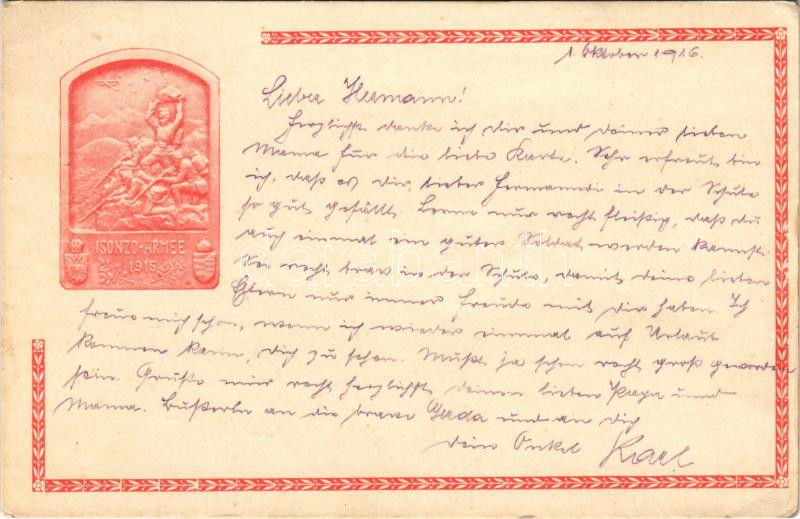 1. Oktober 1916.
Lieber Hermann!
Herzlichst danke ich dir und deiner lieben
Mama für die liebe Karte. Sehr erfreut bin
ich, daß es dir, lieber Hermanndi in der Schule
so gut gefällt. Lerne nur recht fleißig, daß du
auch einmal ein guter Soldat werden kannst.
Sei recht brav in der Schule, damit deine lieben
Eltern nur immer Freude mit dir haben. Ich
freue mich schon, wenn ich wieder einmal auf Urlaub
kommen kann, dich zu sehen. Mußt ja schon recht groß geworden
sein. Grüße mir recht herzlichst deinen lieben Papa und
Mama. Bußerln an die brave Gerda und an dich
dein Onkel Karl
ISONZO-ARMEE
1915